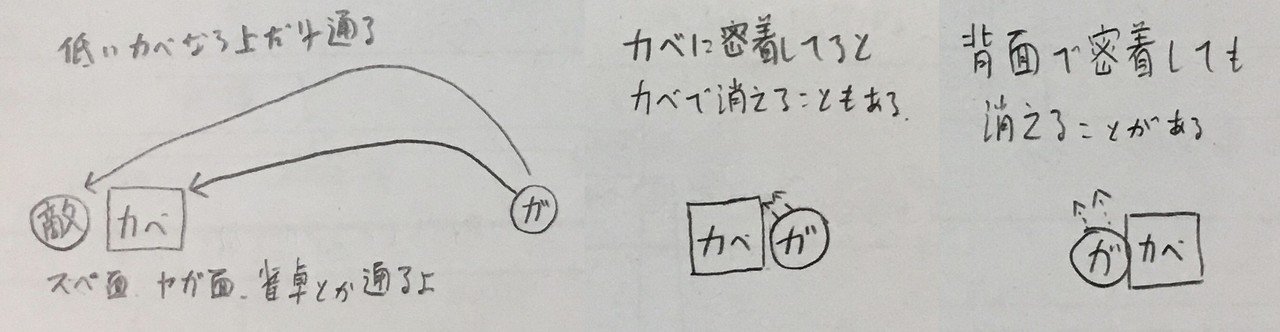 低いカベなら上だけ通る
敵
カベ
が
スペ面、ヤガ面、雀卓とか通るよ
カベに密着してると
カベで消えることもある.
カベ
が
背面で密着しても
消えることがある
が
カベ